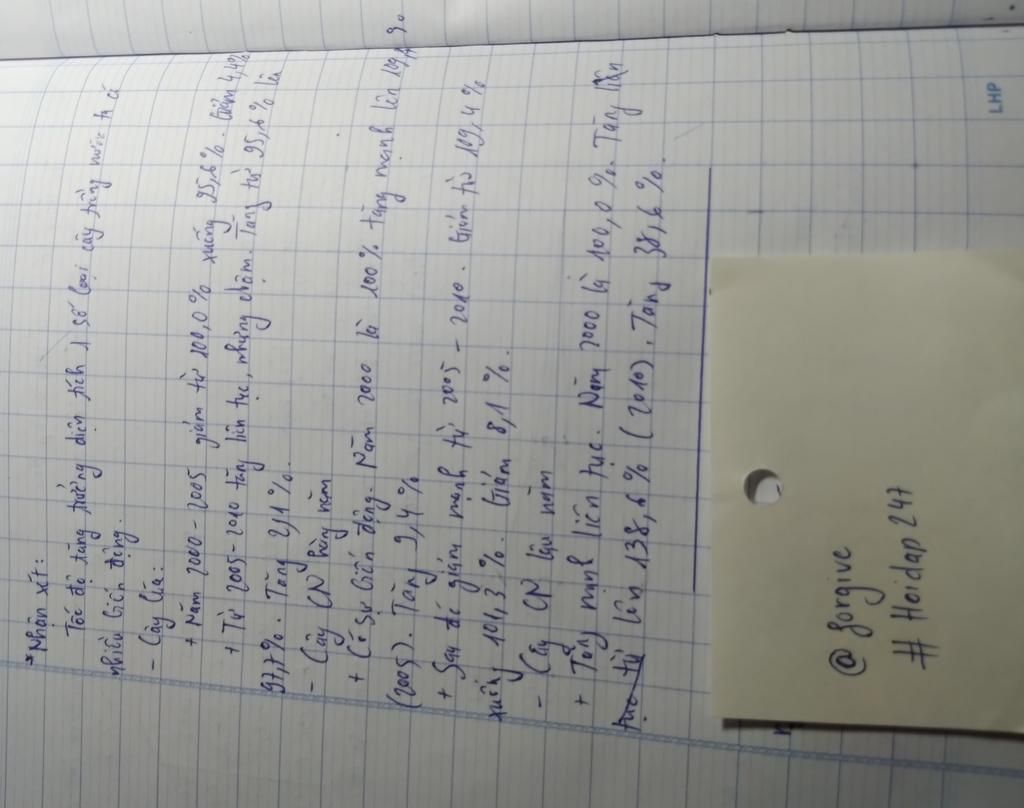 *Nhận xét:
Tốc độ tăng trưởng diện tích 1 số loại cây trồng nước ta có
nhiều biến động.
- Cây lúa:
+ Năm 2000 - 2005 giảm từ 100,0% xuống 95,6%. Giảm 4,4%
+ Từ 2005 - 2010 tăng liên tục, nhưng chậm. Tăng từ 95,6% lên
97,7%. Tăng 2,1%.
- Cây CN hàng năm
+ Có sự biến động. Năm 2000 là 100% tăng mạnh lên
(2005). Tăng 9,4%
+ Sau đó giảm mạnh từ 2005 - 2010. Giảm từ 109,4%
xuống 101,3%. Giảm 8,1%.
- Cây CN lâu năm
+ Tăng mạnh liên tục. Năm 2000 là 100,0%. Tăng liên
tục từ lên 138,6% (2010). Tăng 38,6%.
LHP
@ gorgive
# Hoidap 247